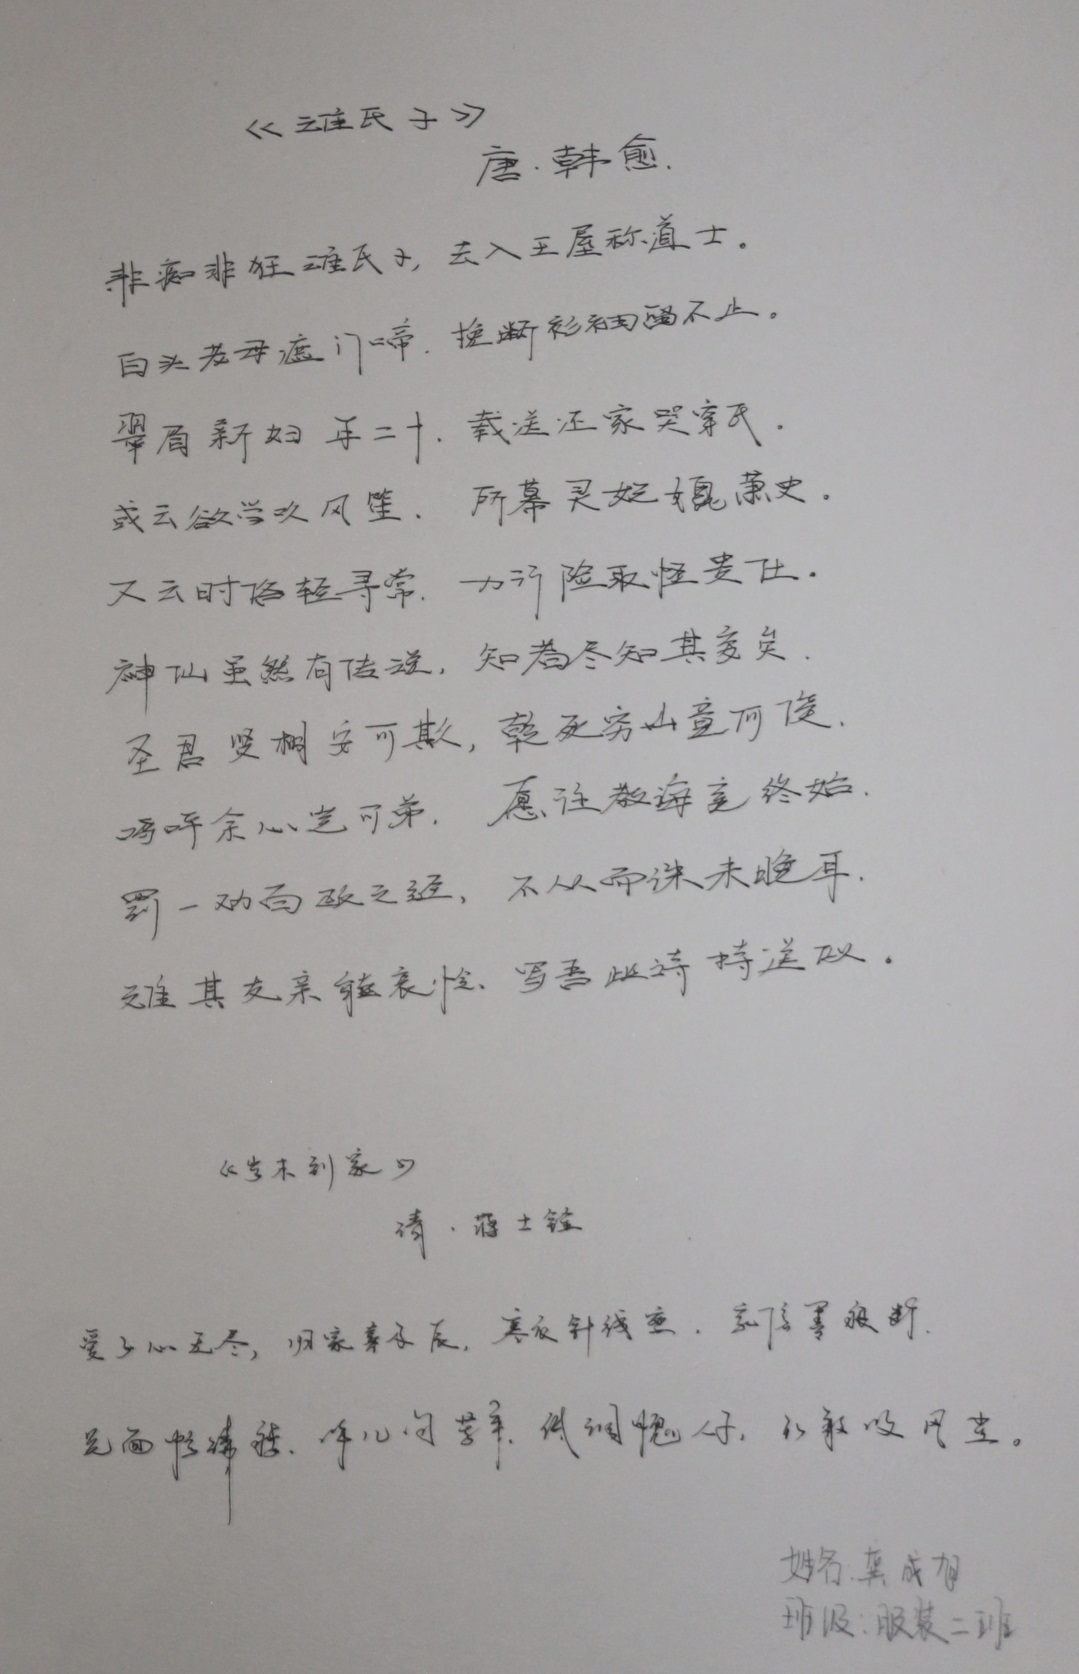 《谁氏子》
唐·韩愈.
非痴非狂谁氏子,去入王屋称道士。
白头老母遮门啼.挽断衫袖留不止。
翠眉新妇年二十.载送还家哭穿氏.
或云欲学吹凤笙.所慕灵妃媲萧史.
又云时俗轻寻常.力行险取怪贵仕.
神仙虽然有传说,知者尽知其妄矣.
圣君贤相安可欺,乾死穷山竟何俟.
呜呼余心岂可弟.愿往教诲究终始.
罚一劝百政之经,不从而诛未晚耳.
谁其友亲能哀怜.写吾此诗持送似。
《岁末到家》
清·蒋士铨
爱子心无尽,归家喜及辰,寒衣针线密.家信墨痕新.
见面怜清瘦.呼儿问苦辛.低徊愧人子,不敢叹风尘。
姓名:龚成
班级:服装二班